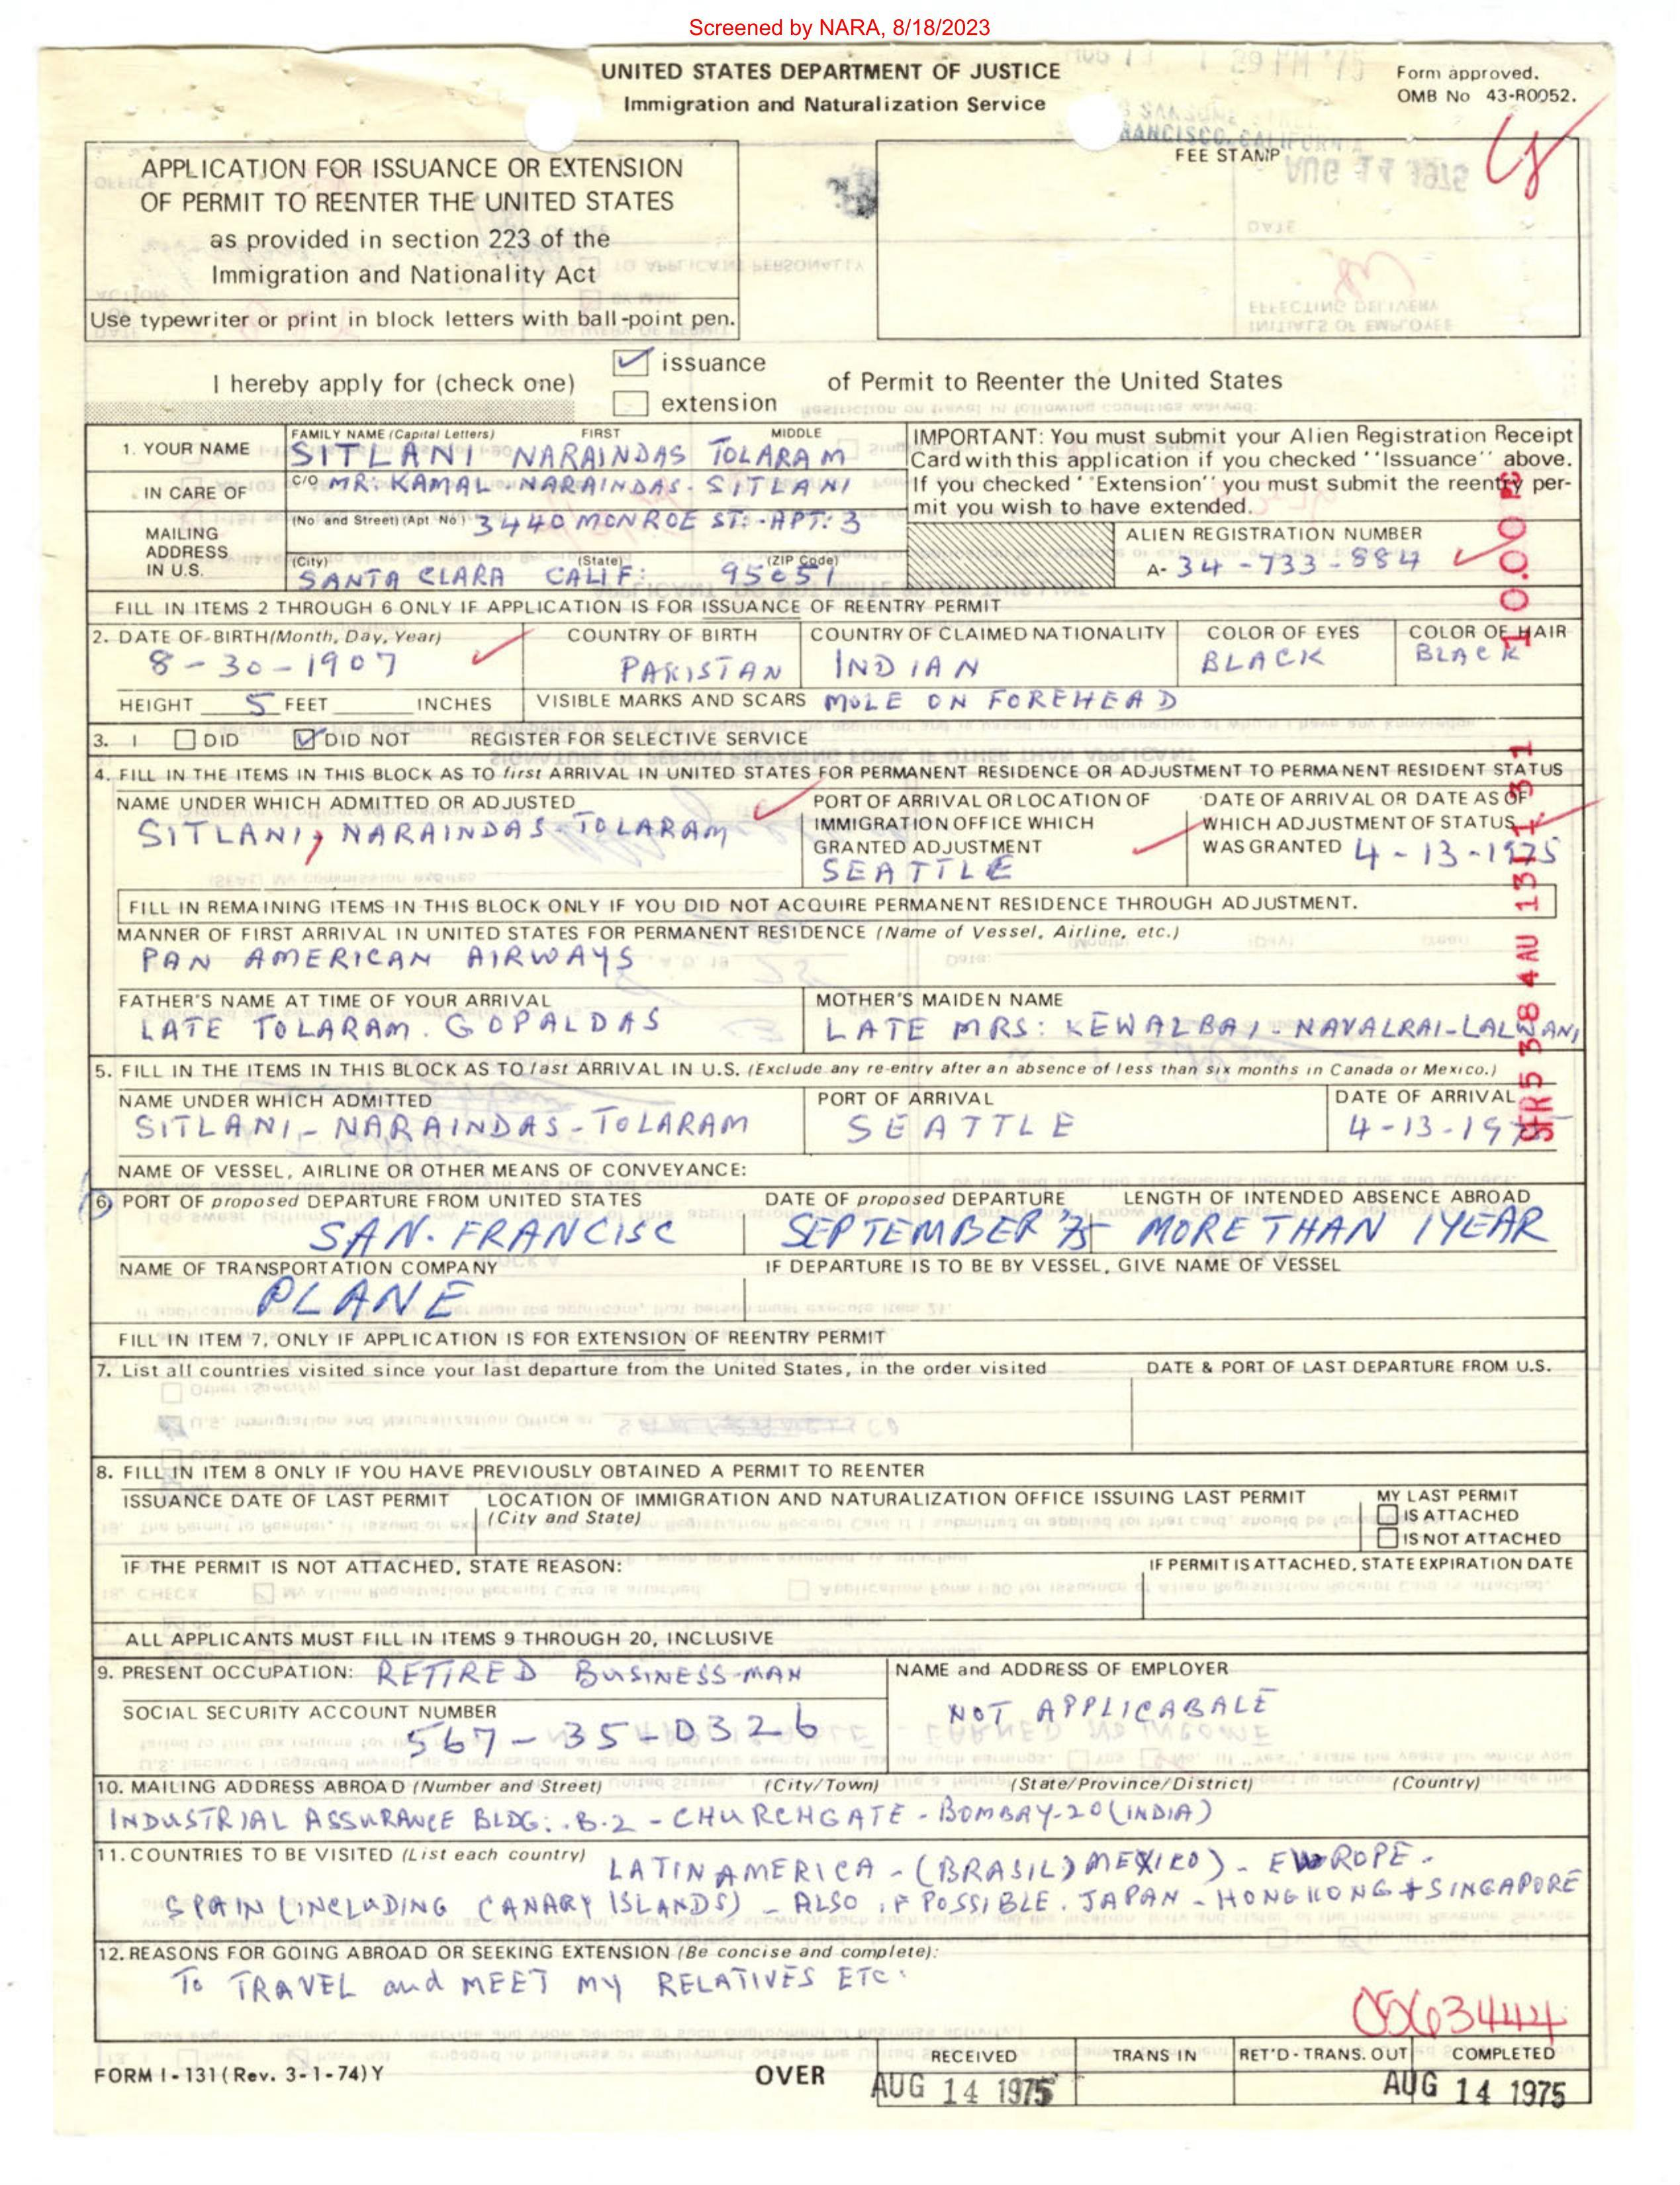 Screened by NARA, 8/18/2023
UNITED STATES DEPARTMENT OF JUSTICE
Immigration and Naturalization Service
Form approved.
OMB No 43-R0052.
APPLICATION FOR ISSUANCE OR EXTENSION
OF PERMIT TO REENTER THE UNITED STATES
as provided in section 223 of the
Immigration and Nationality Act
Use typewriter or print in block letters with ball-point pen.
FEE STAMP
I hereby apply for (check one)
issuance
extension
of Permit to Reenter the United States
1. YOUR NAME
FAMILY NAME (Capital Letters) FIRST MIDDLE
SITLANI NARAINDAS TOLARAM
IN CARE OF
C/O MR: KAMAL - NARAINDAS - SITLANI
MAILING
ADDRESS
IN U.S.
(No and Street) (Apt No) 3440 MONROE ST: - APT: 3
(City) (State) (ZIP Code)
SANTA CLARA CALIF: 95051
IMPORTANT: You must submit your Alien Registration Receipt
Card with this application if you checked ''Issuance'' above.
If you checked ''Extension'' you must submit the reentry per-
mit you wish to have extended.
ALIEN REGISTRATION NUMBER
A- 34-733-884
FILL IN ITEMS 2 THROUGH 6 ONLY IF APPLICATION IS FOR ISSUANCE OF REENTRY PERMIT
2. DATE OF BIRTH (Month, Day, Year) COUNTRY OF BIRTH COUNTRY OF CLAIMED NATIONALITY COLOR OF EYES COLOR OF HAIR
8-30-1907 PAKISTAN INDIAN BLACK BLACK
HEIGHT 5 FEET INCHES VISIBLE MARKS AND SCARS MOLE ON FOREHEAD
3. I DID DID NOT REGISTER FOR SELECTIVE SERVICE
4. FILL IN THE ITEMS IN THIS BLOCK AS TO first ARRIVAL IN UNITED STATES FOR PERMANENT RESIDENCE OR ADJUSTMENT TO PERMANENT RESIDENT STATUS
NAME UNDER WHICH ADMITTED OR ADJUSTED
SITLANI, NARAINDAS - TOLARAM
PORT OF ARRIVAL OR LOCATION OF
IMMIGRATION OFFICE WHICH
GRANTED ADJUSTMENT
SEATTLE
DATE OF ARRIVAL OR DATE AS OF
WHICH ADJUSTMENT OF STATUS
WAS GRANTED 4-13-1975
FILL IN REMAINING ITEMS IN THIS BLOCK ONLY IF YOU DID NOT ACQUIRE PERMANENT RESIDENCE THROUGH ADJUSTMENT.
MANNER OF FIRST ARRIVAL IN UNITED STATES FOR PERMANENT RESIDENCE (Name of Vessel, Airline, etc.)
PAN AMERICAN AIRWAYS
FATHER'S NAME AT TIME OF YOUR ARRIVAL
LATE TOLARAM. GOPALDAS
MOTHER'S MAIDEN NAME
LATE MRS: KEWALBAI - NAVALRAI-LALWANI
5. FILL IN THE ITEMS IN THIS BLOCK AS TO last ARRIVAL IN U.S. (Exclude any re-entry after an absence of less than six months in Canada or Mexico.)
NAME UNDER WHICH ADMITTED PORT OF ARRIVAL DATE OF ARRIVAL
SITLANI - NARAINDAS - TOLARAM SEATTLE 4-13-1975
NAME OF VESSEL, AIRLINE OR OTHER MEANS OF CONVEYANCE:
6. PORT OF proposed DEPARTURE FROM UNITED STATES DATE OF proposed DEPARTURE LENGTH OF INTENDED ABSENCE ABROAD
SAN. FRANCISC SEPTEMBER '75 MORE THAN 1 YEAR
NAME OF TRANSPORTATION COMPANY IF DEPARTURE IS TO BE BY VESSEL, GIVE NAME OF VESSEL
PLANE
FILL IN ITEM 7, ONLY IF APPLICATION IS FOR EXTENSION OF REENTRY PERMIT
7. List all countries visited since your last departure from the United States, in the order visited DATE & PORT OF LAST DEPARTURE FROM U.S.
8. FILL IN ITEM 8 ONLY IF YOU HAVE PREVIOUSLY OBTAINED A PERMIT TO REENTER
ISSUANCE DATE OF LAST PERMIT LOCATION OF IMMIGRATION AND NATURALIZATION OFFICE ISSUING LAST PERMIT
(City and State)
MY LAST PERMIT
IS ATTACHED
IS NOT ATTACHED
IF THE PERMIT IS NOT ATTACHED, STATE REASON: IF PERMIT IS ATTACHED, STATE EXPIRATION DATE
ALL APPLICANTS MUST FILL IN ITEMS 9 THROUGH 20, INCLUSIVE
9. PRESENT OCCUPATION: RETIRED BUSINESS-MAN
NAME and ADDRESS OF EMPLOYER
NOT APPLICABALE
SOCIAL SECURITY ACCOUNT NUMBER
567-35-0326
10. MAILING ADDRESS ABROAD (Number and Street) (City/Town) (State/Province/District) (Country)
INDUSTRIAL ASSURANCE BLDG: . B.2 - CHURCHGATE - BOMBAY-20 (INDIA)
11. COUNTRIES TO BE VISITED (List each country) LATIN AMERICA - (BRASIL) MEXICO) - EUROPE -
SPAIN (INCLUDING CANARY ISLANDS) - ALSO IF POSSIBLE. JAPAN - HONGKONG + SINGAPORE
12. REASONS FOR GOING ABROAD OR SEEKING EXTENSION (Be concise and complete):
TO TRAVEL and MEET MY RELATIVES ETC.
0563444
FORM I-131 (Rev. 3-1-74) Y
OVER
RECEIVED TRANS IN RET'D-TRANS. OUT COMPLETED
AUG 14 1975 AUG 14 1975